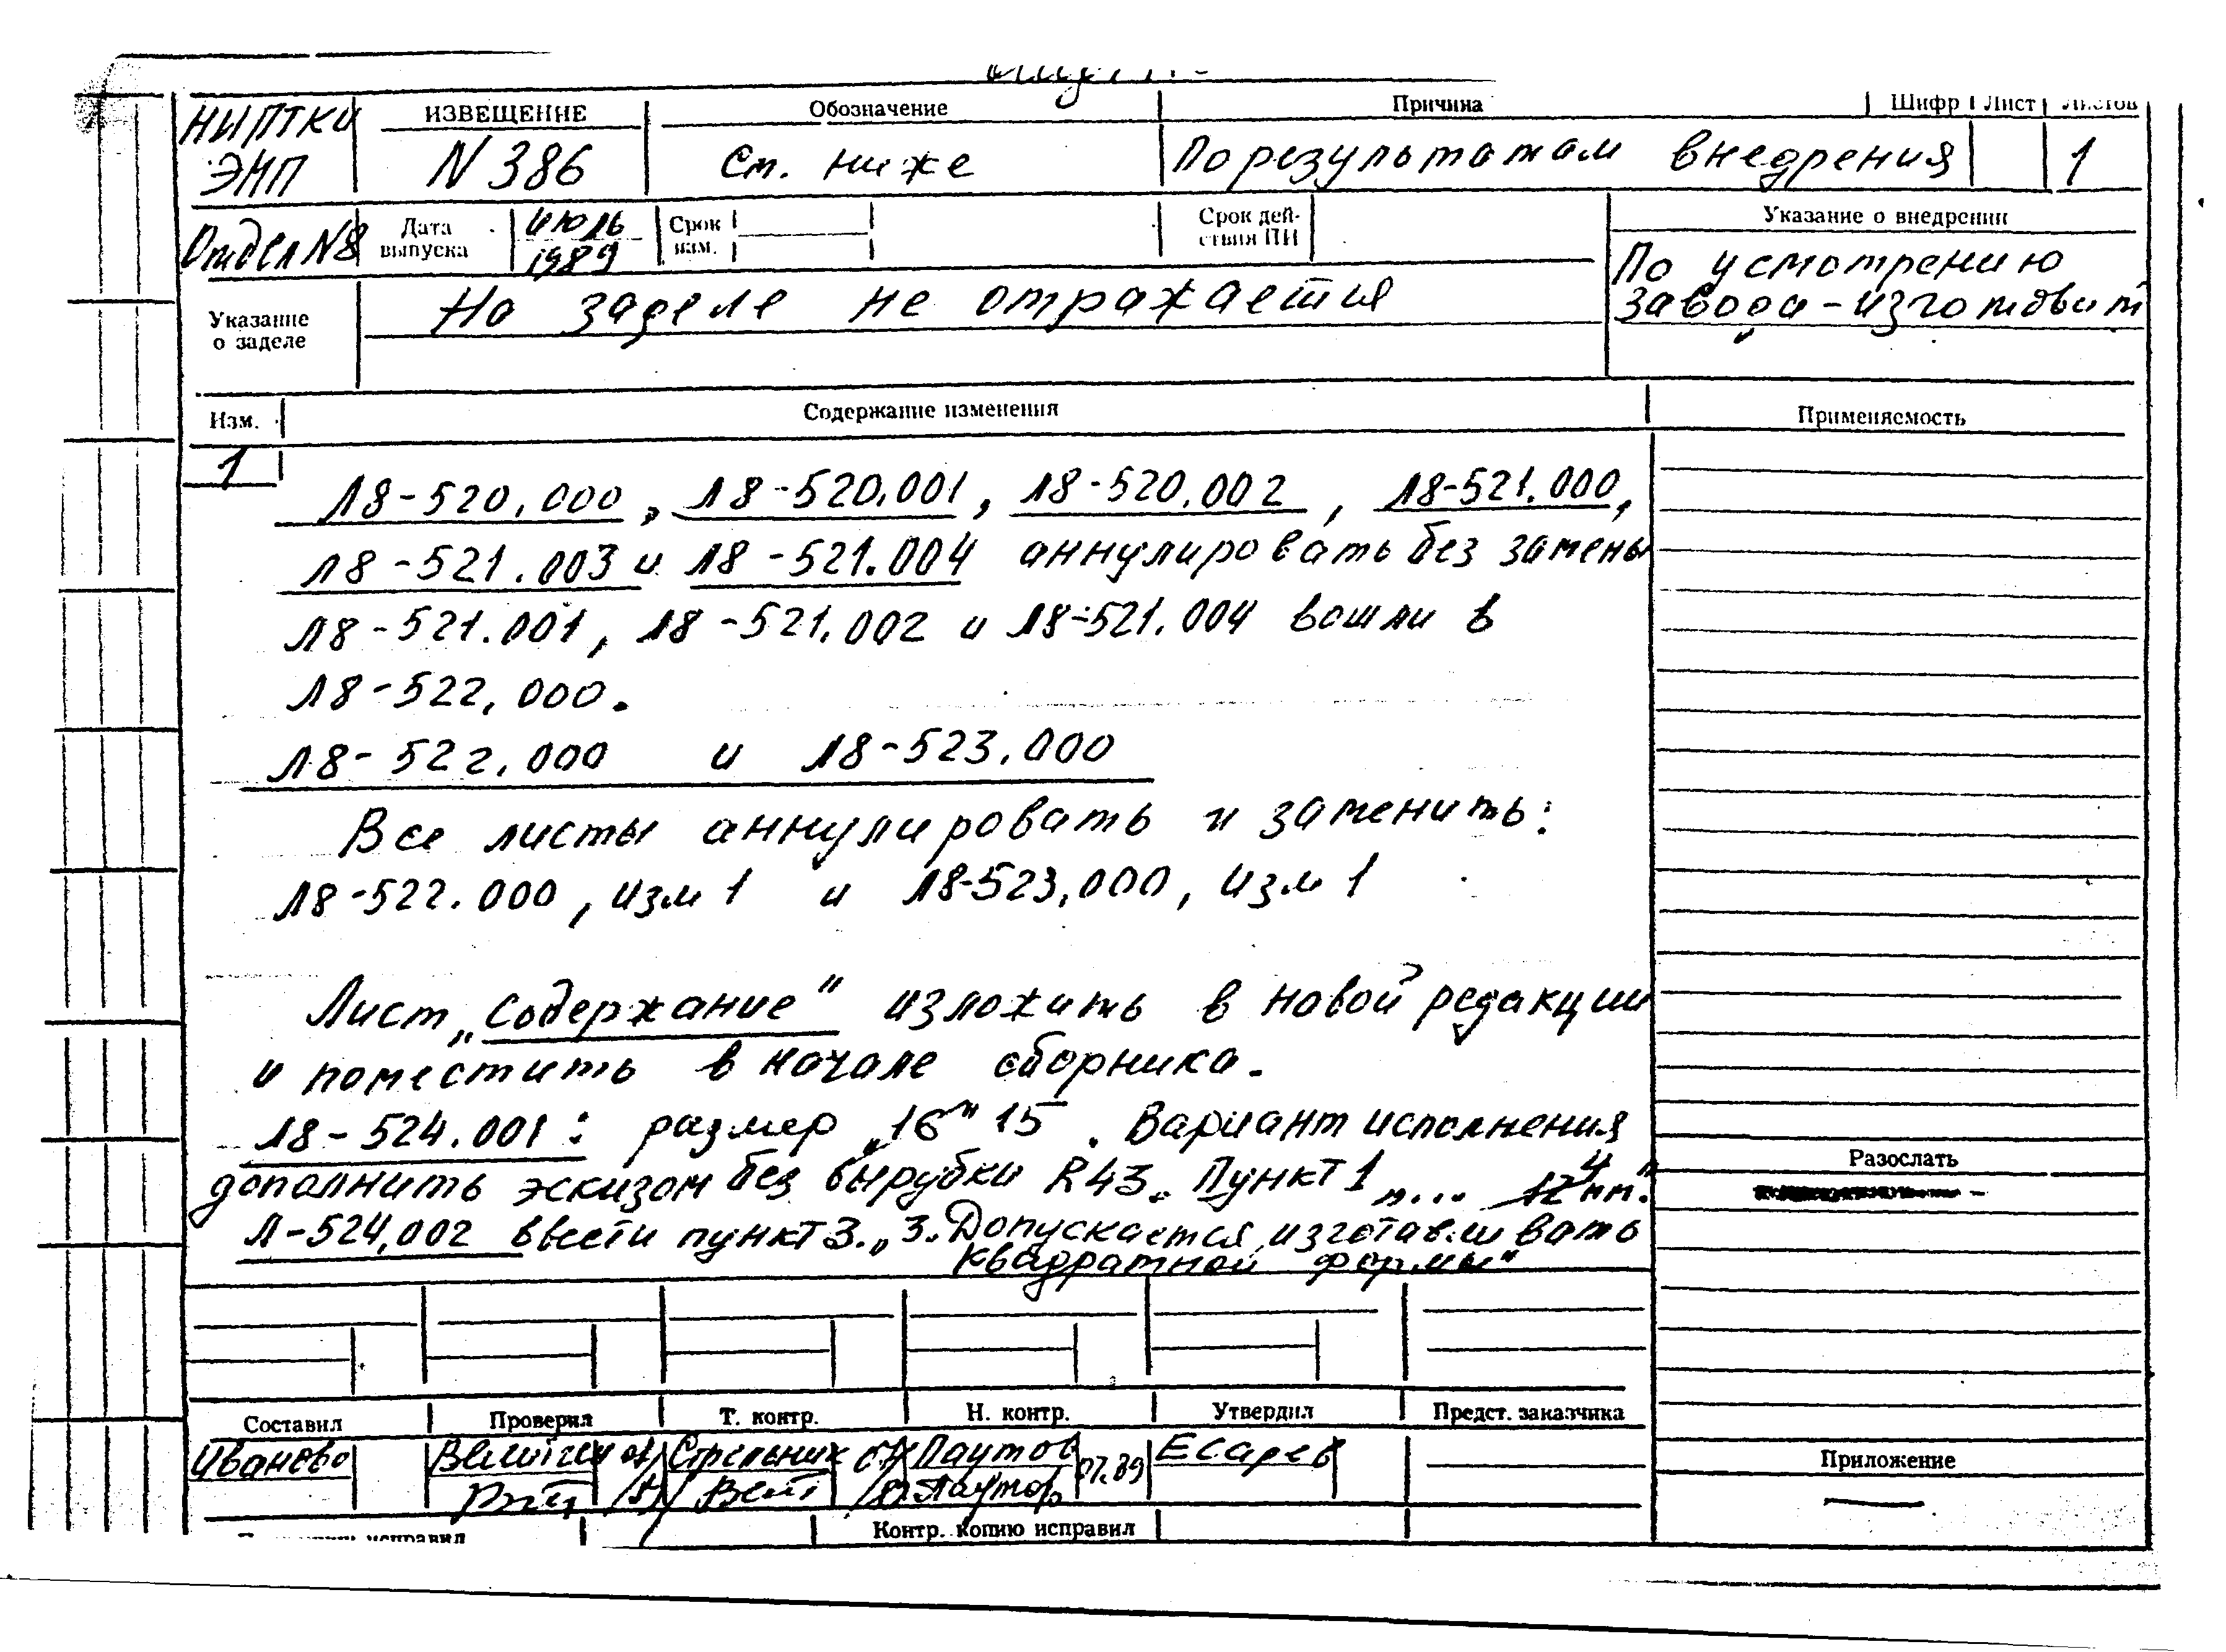 НИПТКИ
ЭМП
ИЗВЕЩЕНИЕ
N 386
Обозначение
См. ниже
Причина
По результатам внедрения
Шифр Лист Листов
1
Отдел N8
Дата выпуска
июль
1989
Срок изм.
Срок дей-
ствия ПИ
Указание о внедрении
По усмотрению
завода-изготовит
Указание
о заделе
На заделе не отражается
Изм.
Содержание изменения
Применяемость
1
Л8-520.000, Л8-520.001, Л8-520.002, Л8-521.000,
Л8-521.003 и Л8-521.004 аннулировать без замены
Л8-521.001, Л8-521.002 и Л8-521.004 вошли в
Л8-522.000.
Л8-522.000 и Л8-523.000
Все листы аннулировать и заменить:
Л8-522.000, изм 1 и Л8-523.000, изм 1
Лист „Содержание" изложить в новой редакции
и поместить в начале сборника.
Л8-524.001: размер „16" 15. Вариант исполнения
дополнить эскизом без вырубки R43. Пункт 1 „... 12 4 мм."
Л-524.002 ввести пункт 3. „3. Допускается изготавливать
квадратной формы"
Разослать
Составил
Проверил
Т. контр.
Н. контр.
Утвердил
Предст. заказчика
Иванова
Стрельник
Паутов
07.89
Есарев
Приложение
исправил
Контр. копию исправил